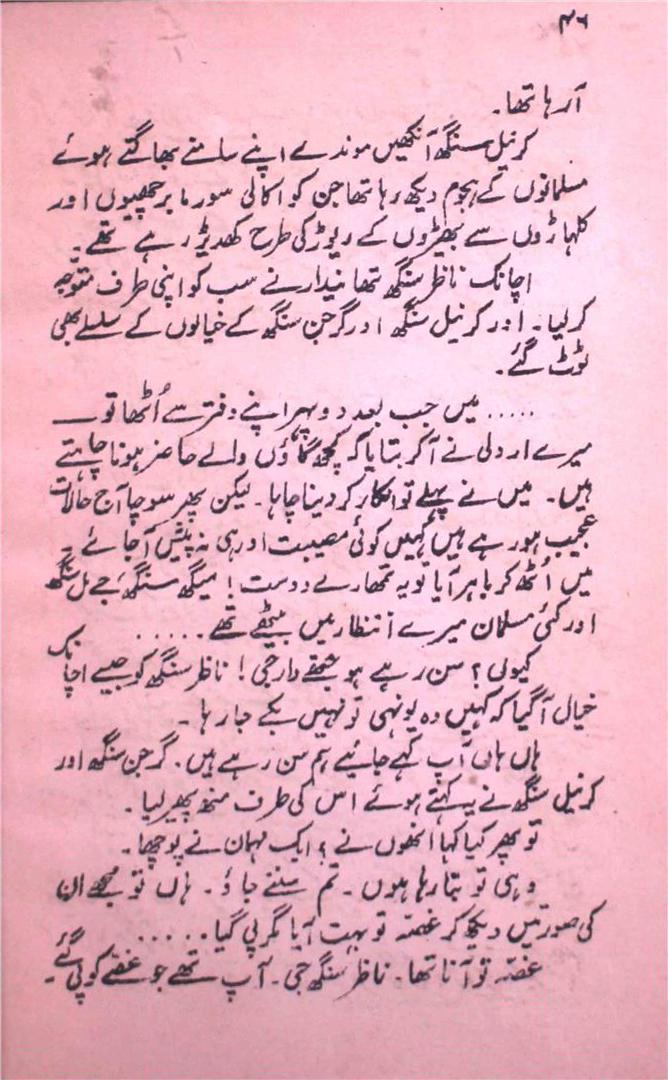 ۴۶
آ رہا تھا۔
کرنیل سنگھ آنکھیں موندے اپنے سامنے بھاگتے ہوئے
مسلمانوں کے ہجوم دیکھ رہا تھا جن کو اکالی سورما برچھیوں اور
کلہاڑوں سے بھیڑوں کے ریوڑ کی طرح کھدیڑ رہے تھے۔
اچانک ناظر سنگھ تھانیدار نے سب کو اپنی طرف متوجہ
کر لیا۔ اور کرنیل سنگھ اور گرجن سنگھ کے خیالوں کے سلسلے بھی
ٹوٹ گئے۔
..... میں جب بعد دوپہر اپنے دفتر سے اُٹھا تو
میرے اردلی نے آ کر بتایا کہ کچھ گاؤں والے حاضر ہونا چاہتے
ہیں۔ میں نے پہلے تو انکار کر دینا چاہا۔ لیکن پھر سوچا آج حالات
عجیب ہو رہے ہیں کہیں کوئی مصیبت اور ہی نہ پیش آ جائے۔
میں اُٹھ کر باہر آیا تو یہ تمھارے دوست! میگھ سنگھ، جے مل سنگھ
اور کئی مسلمان میرے انتظار میں بیٹھے تھے.....
کیوں؟ سن رہے ہو جتھے دار جی! ناظر سنگھ کو جیسے اچانک
خیال آ گیا کہ کہیں وہ یونہی تو نہیں بکے جا رہا۔
ہاں ہاں آپ کہے جائیے ہم سن رہے ہیں۔ گرجن سنگھ اور
کرنیل سنگھ نے یہ کہتے ہوئے اس کی طرف منھ پھیر لیا۔
تو پھر کیا کہا انھوں نے؟ ایک مہمان نے پوچھا۔
وہی تو بتا رہا ہوں۔ تم سنتے جاؤ۔ ہاں تو مجھے ان
کی صورتیں دیکھ کر غصّہ تو بہت آیا مگر پی گیا.....
غصّہ تو آنا تھا۔ ناظر سنگھ جی۔ آپ تھے جو غصّے کو پی گئے۔